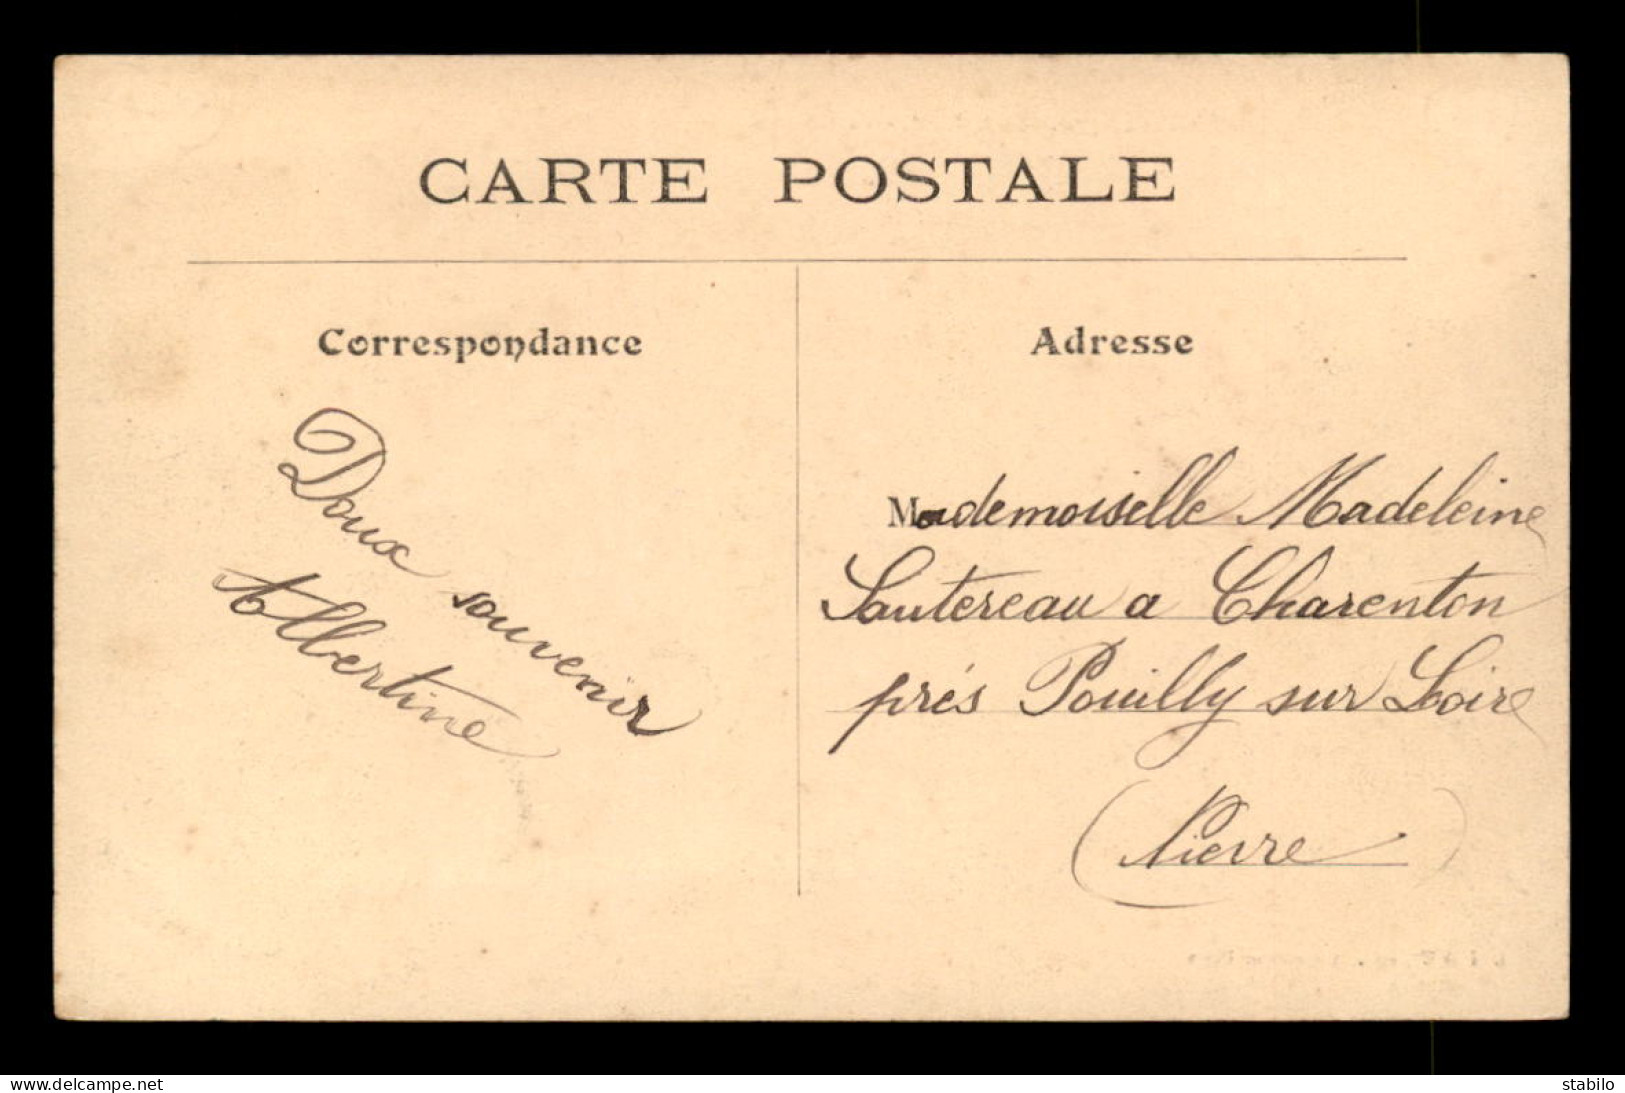 CARTE POSTALE
Correspondance
Doux souvenir
Albertine
Adresse
Mademoiselle Madeleine
Sautereau a Charenton
prés Pouilly sur Loire
(Nievre)
www.delcampe.net
stabilo